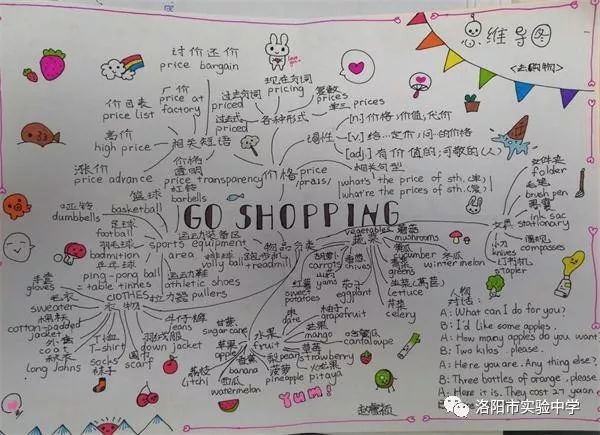 心 思维导图
<去购物>
讨价还价
price bargain
价目表
price list
厂价
price at
factory
高价
high price
相关短语
涨价
price advance
价格
透明
price transparency
现在分词
pricing
过去分词
priced
过去式
priced
复数
prices
单三
prices
各种形式
词性
[n] 价格;价值;代价
[v.] 给…定价;问…的价格
[adj.] 有价值的;可敬的(人)
价格 price
/praɪs/
相关句型
what's the price of sth.
what're the prices of sth.
GO SHOPPING
篮球
basketball
杠铃
barbells
哑铃
dumbbells
足球
football
羽毛球
badmintion
乒乓球
ping-pong ball
table tinnes
运动装备区
sports equipment
area
排球
volly ball
跑步机
treadmill
运动鞋
athletic shoes
拉力器 pullers
物品分类
文具
stationery
文件夹
folder
毛笔
brush pen
墨囊
ink sac
圆规
compasses
小刀
knives
订书机
stapler
vegetables
蔬菜
蘑菇
mushrooms
黄瓜
cumber
冬瓜
winter melon
胡萝卜
carrots
香葱
chives
红薯
sweet
potatoes
茄子
eggplant
青菜
greens
生菜(莴苣)
lettuce
芹菜
celery
CLOTHES
衣物
手套
gloves
毛衣
sweater
棉袄
cotton-padded
jacket
外套
coat
秋衣
long Johns
T恤
T-shirt
袜子
socks
围巾
scarf
牛仔裤
jeans
羽绒服
down jacket
水果
fruit
甘蔗
sugarcane
苹果
apple
荔枝
litchi
香蕉
banana
西瓜
watermelon
梨
pear
菠萝
pineapple
火龙果
pitaya
草莓
strawberry
枣
date
柚子
grapefruit
芒果
mango
哈蜜瓜
cantaloupe
Yum!
人物
对话:
A: What can I do for you?
B: I'd like some apples.
A: How many apples do you want
B: Two kilos, please.
A: Here you are. Any thing else?
B: Three bottles of orange, please
A: Here it is. They cost 27 yuan
洛阳市实验中学